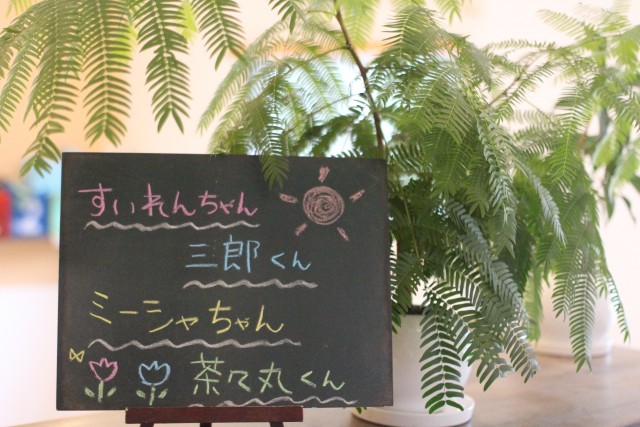 すいれんちゃん
三郎くん
ミーシャちゃん
茶々丸くん